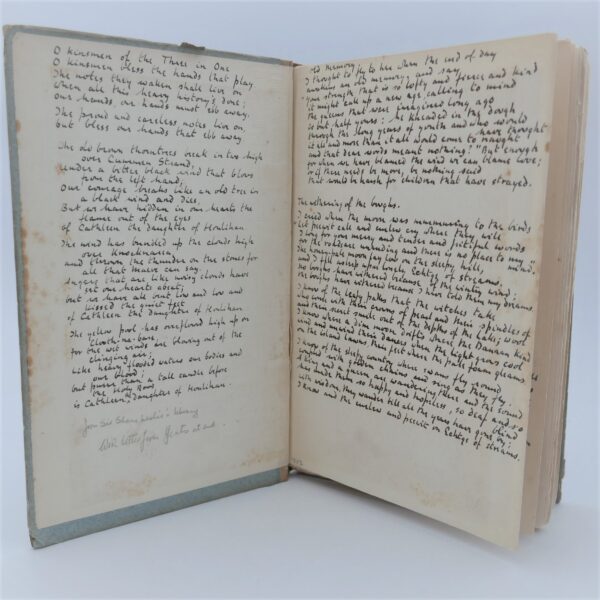 O Kinsmen of the Three in One
O Kinsmen bless the hands that play
The notes they waken shall live on
When all this heavy history's done;
Our hands, our hands must ebb away.
The proud and careless notes live on
but bless our hands that ebb away
The old brown thorntrees break in two high
over Cummen Strand,
Under a bitter black wind that blows
from the left hand;
Our courage breaks like an old tree in
a black wind and dies
But we have hidden in our hearts the
flame out of the eyes
of Cathleen the daughter of Houlihan
The wind has bundled up the clouds high
over Knocknarea
and thrown the thunder on the stones for
all that Maeve can say
Angers that are like noisy clouds have
set our hearts abeat;
but we have all bent low and low and
kissed the quiet feet
of Cathleen the daughter of Houlihan
The yellow pool has overflowed high up on
Clooth-na-bare
for the wet winds are blowing out of the
clinging air;
Like heavy flooded waters our bodies and
our blood;
but purer than a tall candle before
the Holy Rood
is Cathleen daughter of Houlihan.
from Sir Shane Leslie's library
With letter from Yeats at end.
Old Memory.
I thought to fly to her when the end of day
awakens an old memory, and say
your strength that is so lofty and fierce and kind
it might call up a new age calling to mind
the queens that were imagined long ago
is but half yours: he kneaded in the dough
through the long years of youth and who would
have thought
it all and more than it all would come to naught
and that dear words meant nothing? But enough
for when we have blamed the wind we can blame love;
or if there needs be more, be nothing said
that would be harsh for children that have strayed.
The withering of the boughs.
I cried when the moon was murmuring to the birds
Let peewit call and curlew cry where they will
I long for your merry and tender and pitiful words
for the roads are unending and there is no place to my
mind.
the honey pale moon lay low on the sleepy hill,
and I fell asleep upon lonely Echtge of streams,
No boughs have withered because of the wintry wind;
the boughs have withered because I have told them my dreams
I know of the leafy paths that the witches take
who come with their crowns of pearl and their spindles of
wool
and their secret smile out of the depths of the lake;
I know where a dim moon drifts where the Danaan kind
wind and unwind their dances when the light grows cool
on the island lawns their feet where the pale foam gleams.
I know of the sleepy country where swans fly round
coupled with golden chains and sing as they fly.
a king and a queen are wandering there and the sound
has made them so happy and hopeless, so deaf and so
blind
with wisdom, they wander till all the years have gone by;
I know and the curlew and peewit on Echtge of streams.